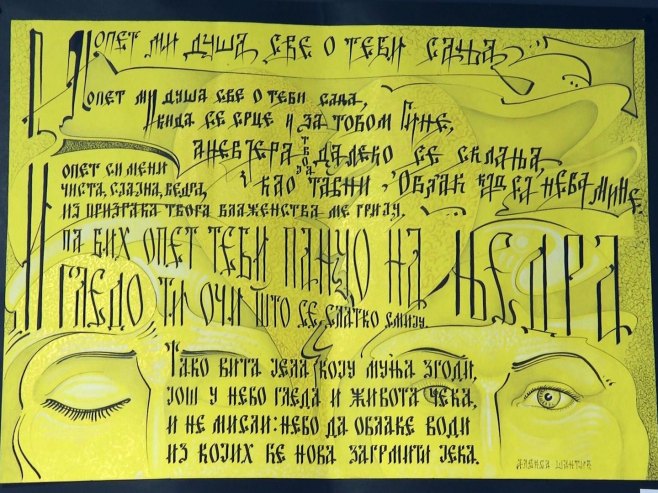 И опет ми душа све о теби сања
И опет ми душа све о теби сања,
И кида се срце и за тобом гине,
А невјера твоја далеко се склања,
Као тавни облак кад са неба мине.
И опет си мени
чиста, сјајна, ведра,
из призрака твога блаженства ме грију.
Па бих опет теби пануо на њедра
И гледо ти очи што се слатко смију.
Тако вита јела коју муња згоди,
још у небо гледа и живота чека,
и не мисли: небо да облаке води
из којих ће нова загрмити јека.
Алекса Шантић